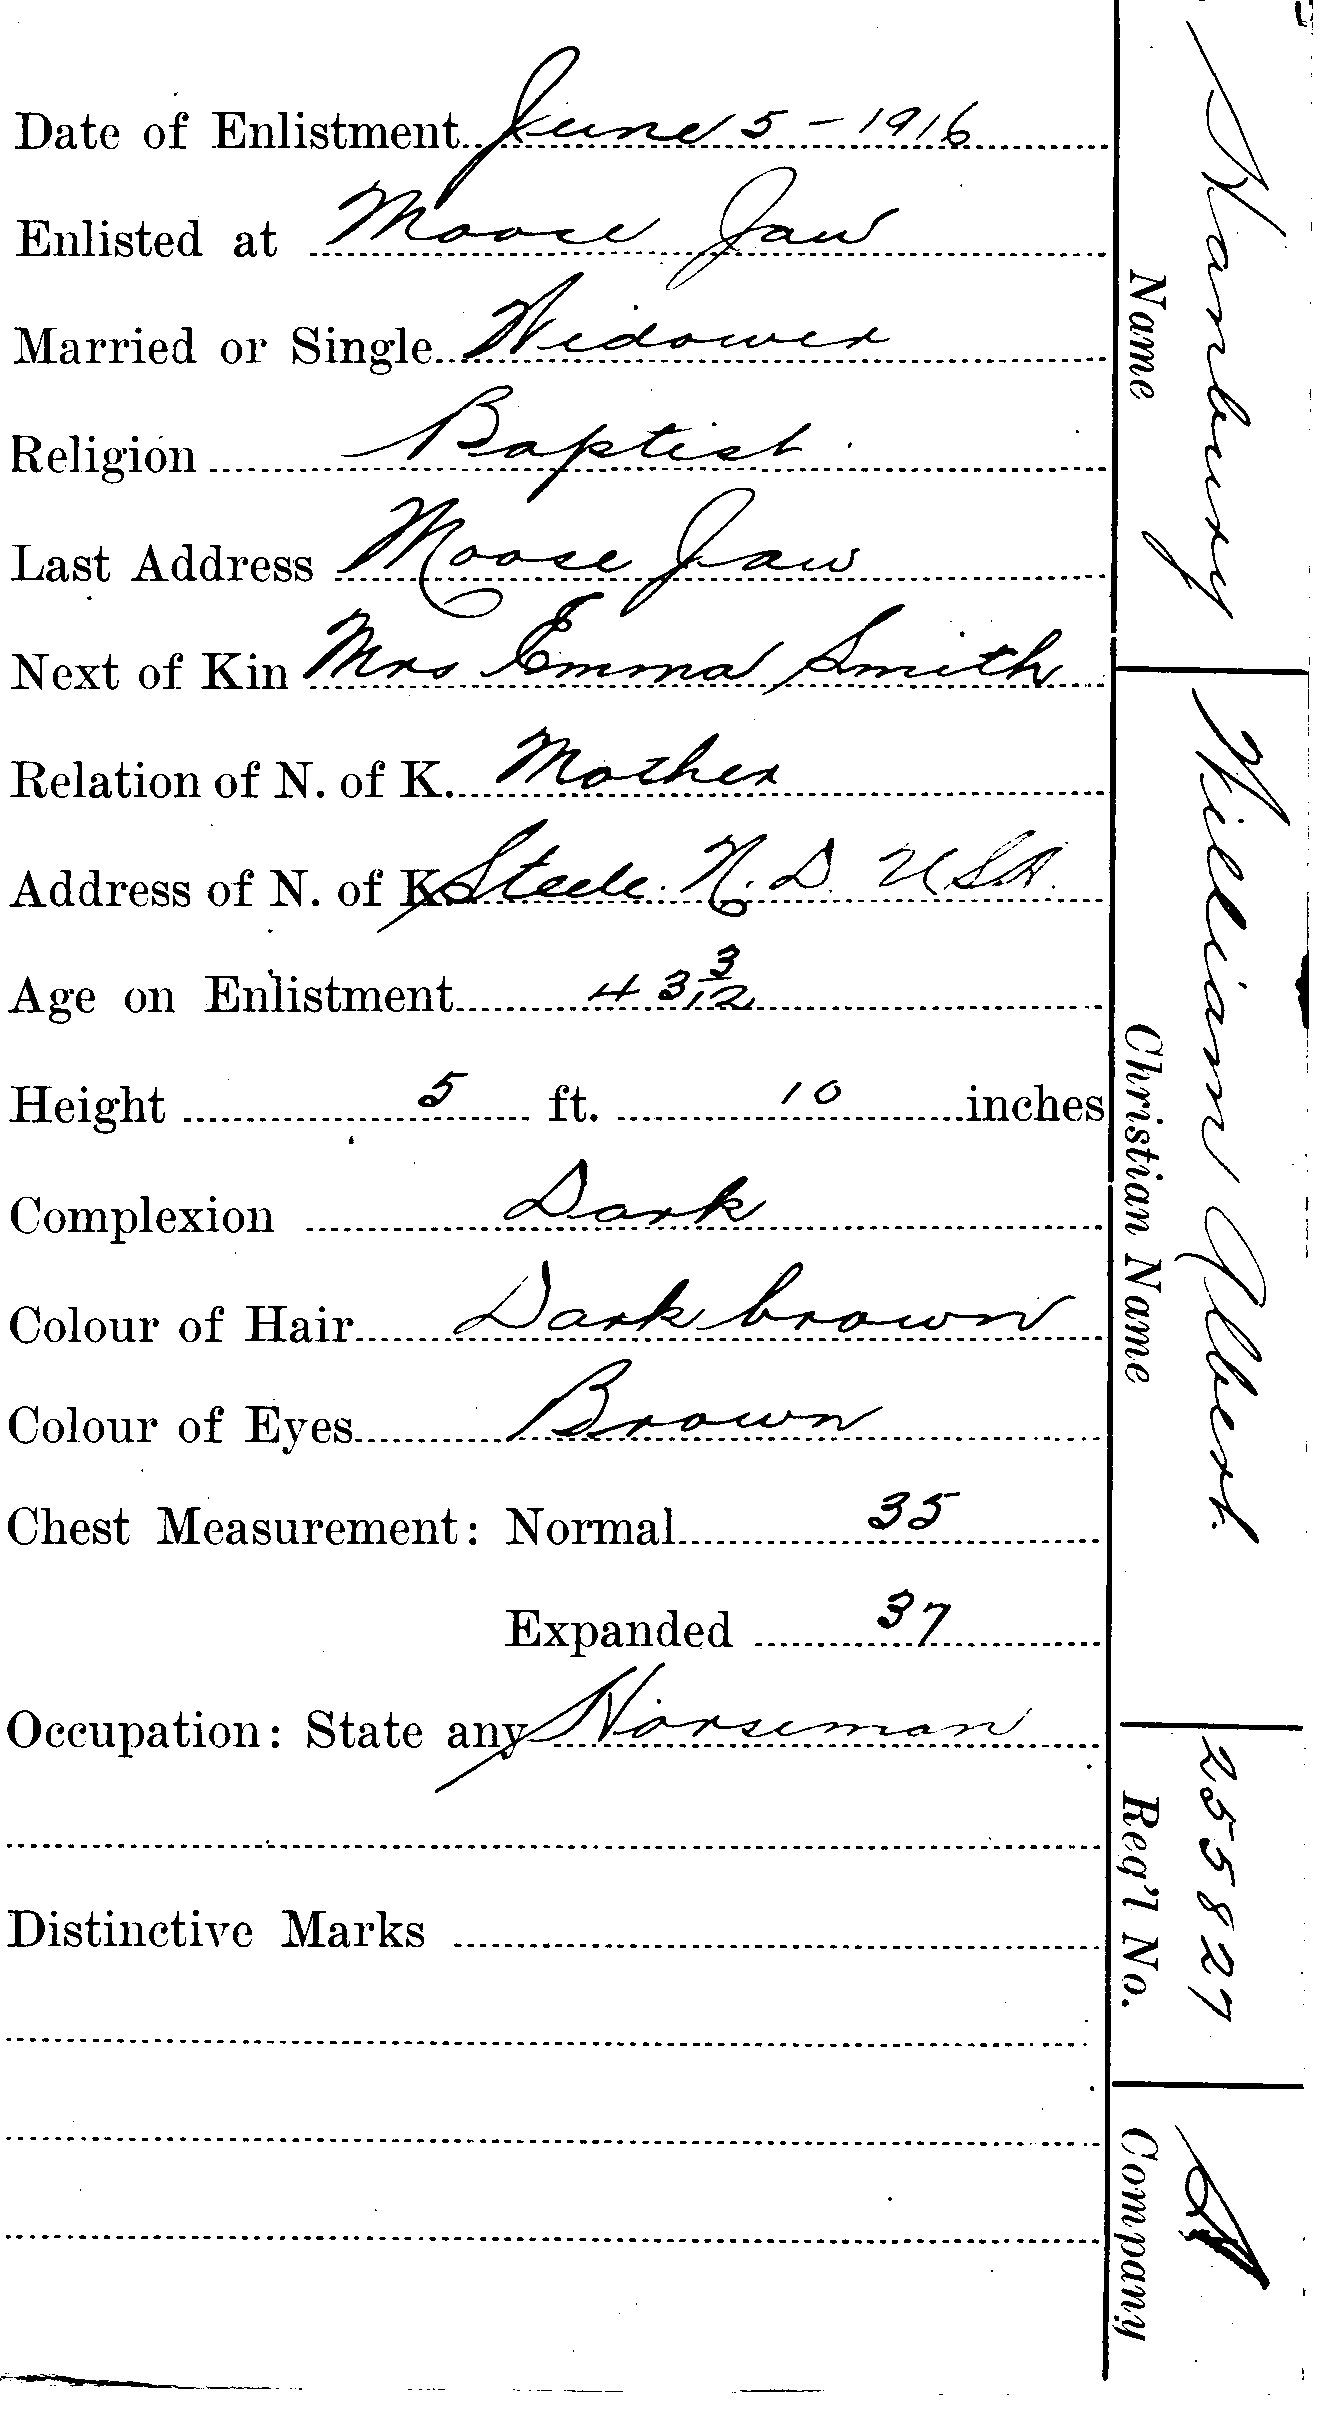 Date of Enlistment June 5 - 1916
Enlisted at Moose Jaw
Married or Single Widower
Religion Baptist
Last Address Moose Jaw
Next of Kin Mrs Emma Smith
Relation of N. of K. Mother
Address of N. of K. Steele. N. D. USA.
Age on Enlistment 43 3/12
Height 5 ft. 10 inches
Complexion Dark
Colour of Hair Dark brown
Colour of Eyes Brown
Chest Measurement: Normal 35
Expanded 37
Occupation: State any Horseman
Distinctive Marks
Hanbury
Name
William Albert
Christian Name
255827
Reg'l No.
A
Company